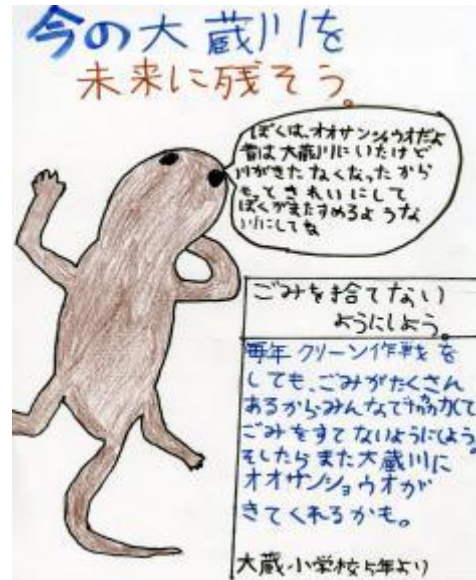 今の大蔵川を
未来に残そう。
ぼくは、オオサンショウオだよ
昔は大蔵川にいたけど
川がきたなくなったから
もっときれいにして
ぼくがまたすめるような
川にしてね
ごみを捨てない
ようにしよう。
毎年クリーン作戦を
しても、ごみがたくさん
あるからみんなで協力して
ごみをすてないようにしよう。
そしたらまた大蔵川に
オオサンショウオが
きてくれるかも。
大蔵小学校5年より